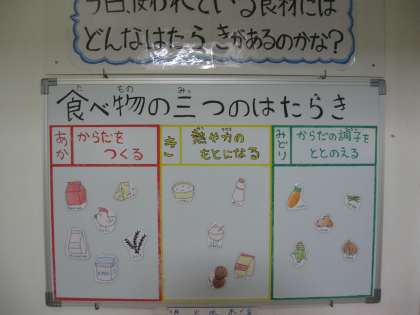 今日使われている食材には
どんなはたらきがあるのかな?
食べ物の三つのはたらき
た もの みっ
あか
からだを
つくる
きいろ
熱や力の
もとになる
みどり
からだの調子を
ととのえる